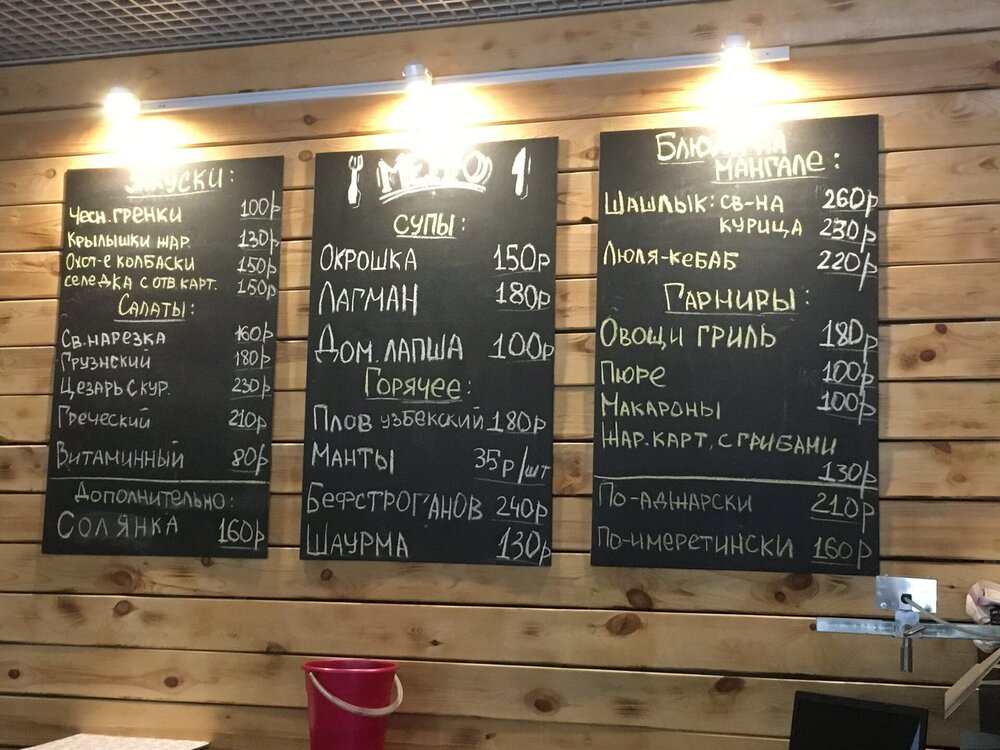 Закуски:
Чесн. гренки 100р
Крылышки жар. 130р
Охот-е колбаски 150р
селедка с отв карт. 150р
Салаты:
Св. нарезка 160р
Грузнский 180р
Цезарь с кур. 230р
Греческий 210р
Витаминный 80р
Дополнительно:
Солянка 160р
Меню
супы:
Окрошка 150р
Лагман 180р
Дом. лапша 100р
Горячее:
Плов узбекский 180р
Манты 35р/шт
Бефстроганов 240р
Шаурма 130р
Блюда на
мангале:
Шашлык: св-на 260р
курица 230р
Люля-кебаб 220р
Гарниры:
Овощи гриль 180р
Пюре 100р
Макароны 100р
Жар. карт. с грибами
130р
По-аджарски 210р
По-имеретински 160р